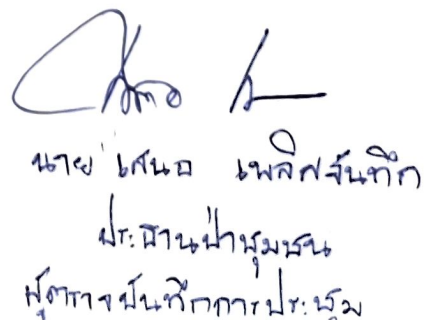 นาย เสนอ เพลิศจันทึก
ประธานป่าชุมชน
ผู้ตรวจบันทึกการประชุม